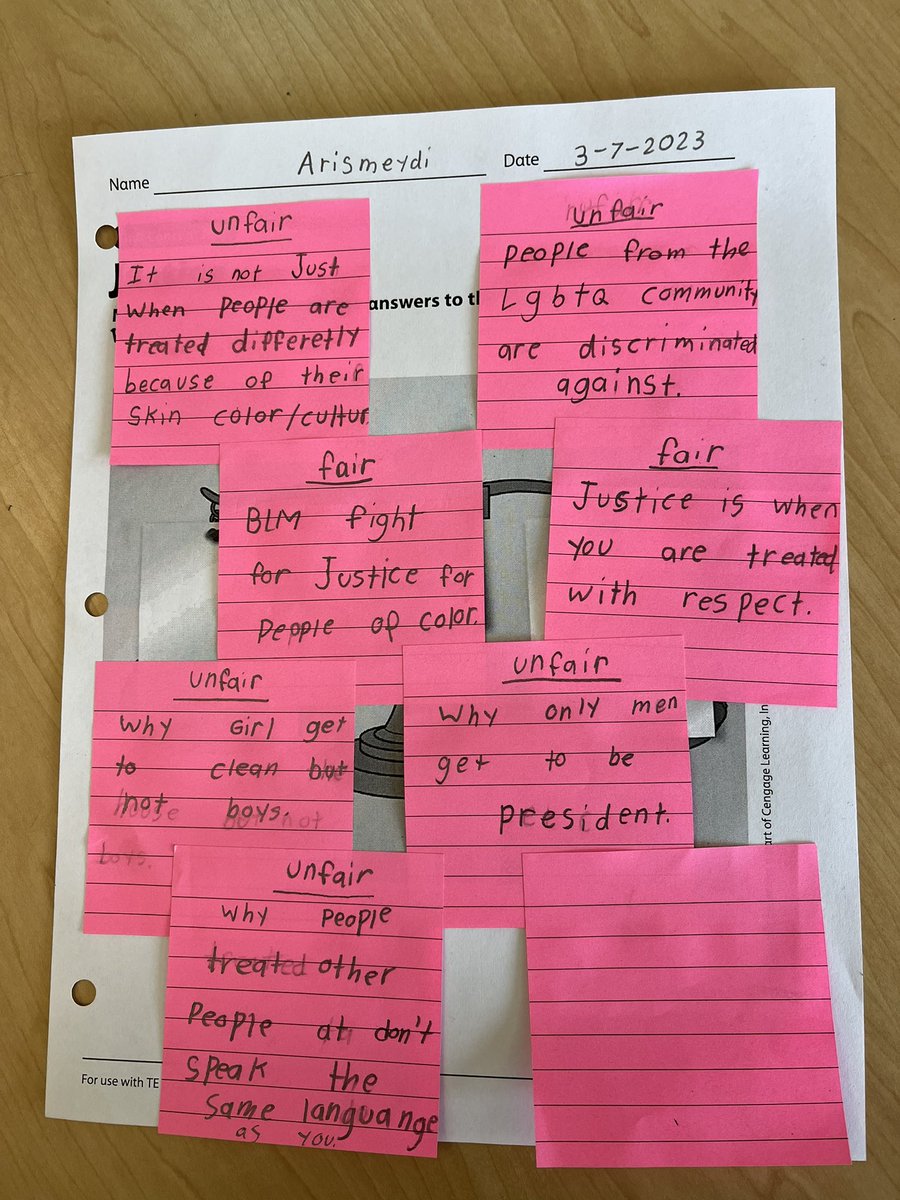 Name Arismeydi Date 3-7-2023
answers to th
unfair
It is not Just
when people are
treated differetly
because of their
skin color/cultur
unfair
people from the
Lgbta community
are discriminated
against.
fair
BLM fight
for Justice for
people of color.
fair
Justice is when
you are treated
with respect.
unfair
why Girl get
to clean but
not boys.
unfair
Why only men
get to be
president.
unfair
why people
treated other
people at don't
speak the
same languange
as you.
For use with TE
art of Cengage Learning, In